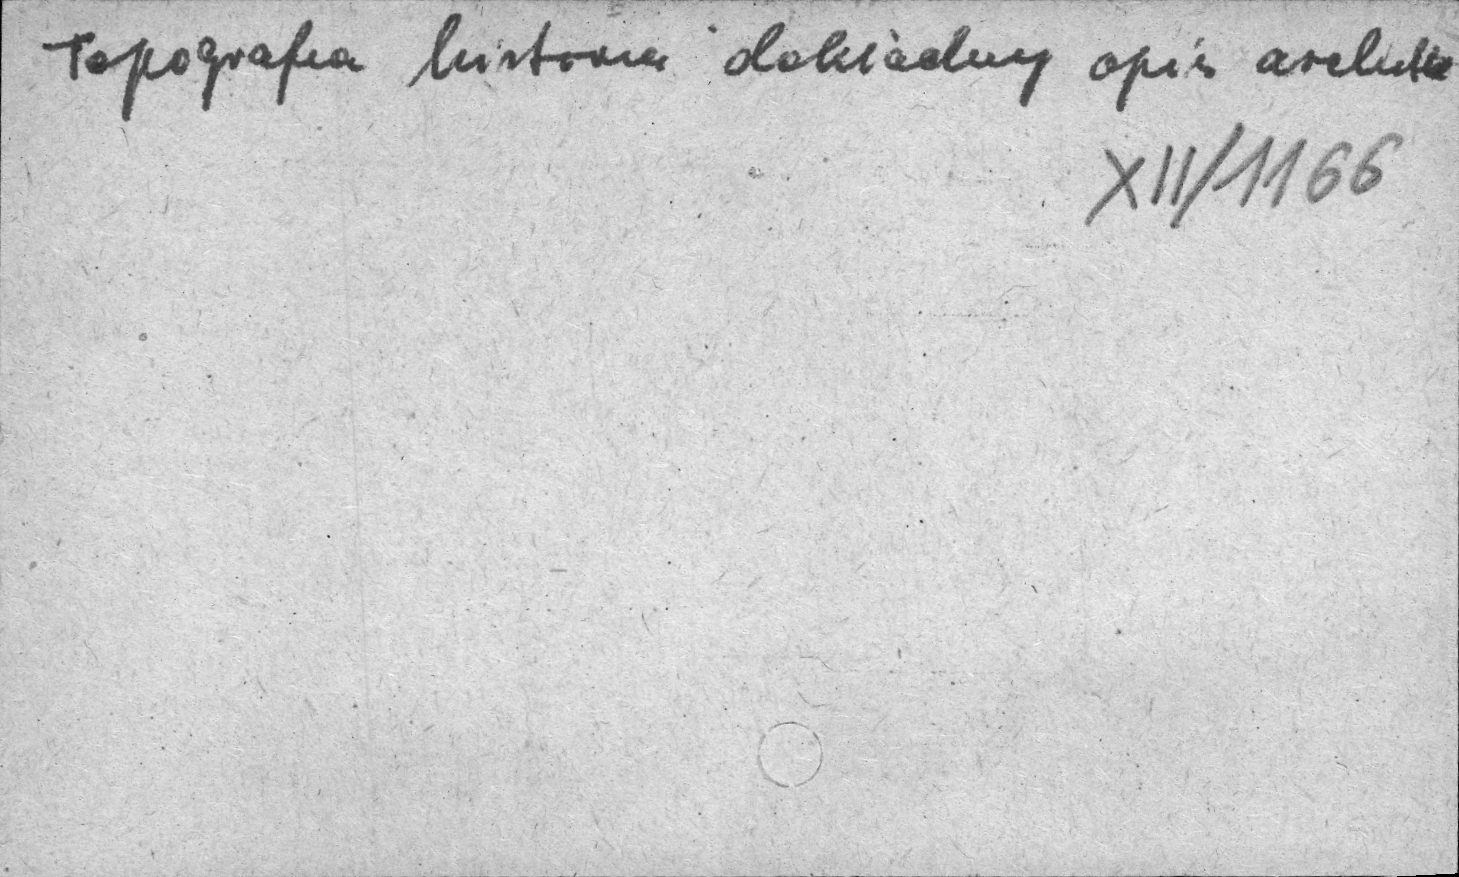 Topografia historia dokładny opis archite
XII/1166